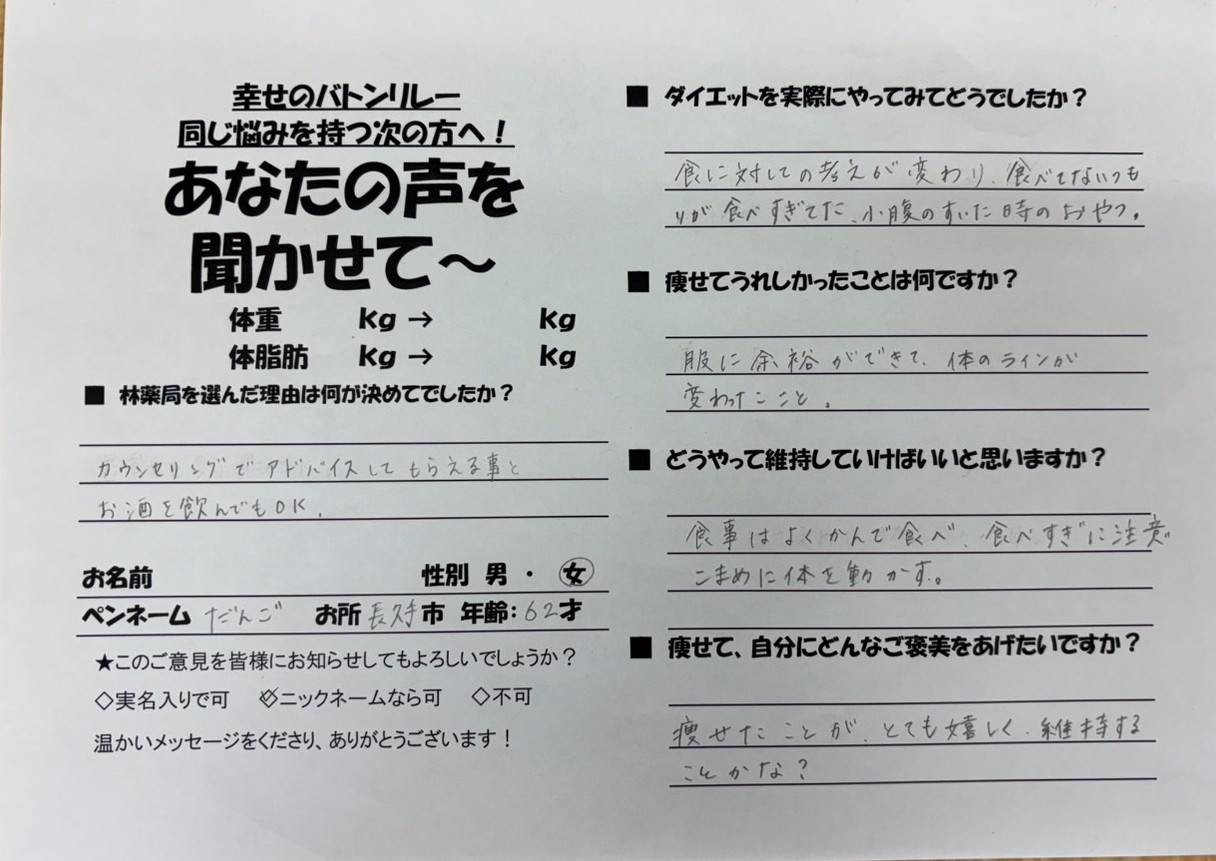 幸せのバトンリレー
同じ悩みを持つ次の方へ！
あなたの声を
聞かせて～
体重 kg → kg
体脂肪 kg → kg
■ 林薬局を選んだ理由は何が決めてでしたか？
カウンセリングでアドバイスしてもらえる事と
お酒を飲んでもOK.
お名前 性別 男 ・ 女
ペンネーム だんご お所 長久手市 年齢：62才
★このご意見を皆様にお知らせしてもよろしいでしょうか？
◇実名入りで可 ◇ニックネームなら可 ◇不可
温かいメッセージをくださり、ありがとうございます！
■ ダイエットを実際にやってみてどうでしたか？
食に対しての考えが変わり、食べてないつも
りが食べすぎてた、小腹のすいた時のおやつ。
■ 痩せてうれしかったことは何ですか？
服に余裕ができて、体のラインが
変わったこと。
■ どうやって維持していけばいいと思いますか？
食事はよくかんで食べ、食べすぎに注意
こまめに体を動かす。
■ 痩せて、自分にどんなご褒美をあげたいですか？
痩せたことが、とても嬉しく、維持する
ことかな？